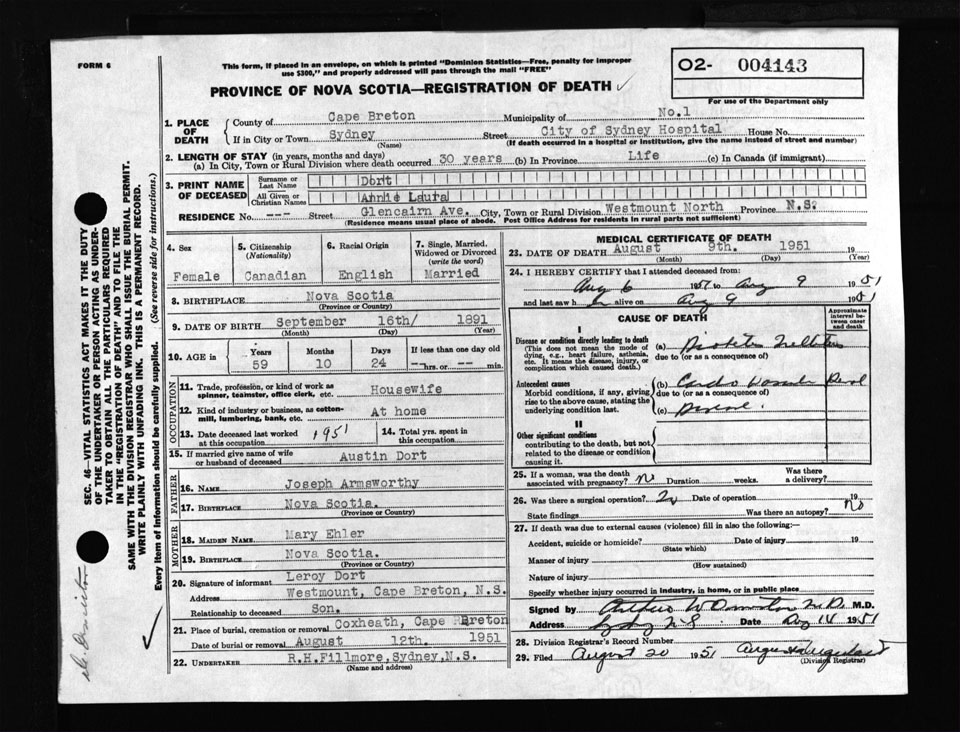 FORM 6
This form, if placed in an envelope, on which is printed "Dominion Statistics—Free, penalty for improper
use $300," and properly addressed will pass through the mail "FREE"
O2- 004143
For use of the Department only
PROVINCE OF NOVA SCOTIA—REGISTRATION OF DEATH
1. PLACE OF DEATH
County of Cape Breton Municipality of No.1
If in City or Town Sydney Street City of Sydney Hospital House No.
(Name) (If death occurred in a hospital or institution, give the name instead of street and number)
2. LENGTH OF STAY (in years, months and days)
(a) In City, Town or Rural Division where death occurred 30 years (b) In Province Life (c) In Canada (if immigrant)
3. PRINT NAME OF DECEASED
Surname or Last Name Dort
All Given or Christian Names Annie Laura
RESIDENCE No. --- Street Glencairn Ave. City, Town or Rural Division Westmount North Province N.S.
(Residence means usual place of abode. Post Office Address for residents in rural parts not sufficient)
4. Sex 5. Citizenship (Nationality) 6. Racial Origin 7. Single, Married, Widowed or Divorced (write the word)
Female Canadian English Married
8. BIRTHPLACE Nova Scotia
(Province or Country)
9. DATE OF BIRTH September 16th/ 1891
(Month) (Day) (Year)
10. AGE in Years Months Days If less than one day old
59 10 24 --hrs. or -- min.
OCCUPATION
11. Trade, profession, or kind of work as
spinner, teamster, office clerk, etc. Housewife
12. Kind of industry or business, as cotten-
mill, lumbering, bank, etc. At home
13. Date deceased last worked at this occupation 1951
14. Total yrs. spent in this occupation
15. If married give name of wife
or husband of deceased Austin Dort
FATHER
16. NAME Joseph Armsworthy
17. BIRTHPLACE Nova Scotia.
(Province or Country)
MOTHER
18. MAIDEN NAME Mary Ehler
19. BIRTHPLACE Nova Scotia.
(Province or Country)
20. Signature of informant Leroy Dort
Address Westmount, Cape Breton, N.S.
Relationship to deceased Son.
21. Place of burial, cremation or removal Coxheath, Cape Breton
Date of burial or removal August 12th. 1951
22. UNDERTAKER R.H.Fillmore, Sydney, N.S.
(Name and address)
MEDICAL CERTIFICATE OF DEATH
23. DATE OF DEATH August 9th. 1951 19
(Month) (Day) (Year)
24. I HEREBY CERTIFY that I attended deceased from:
Aug 6 1951 to Aug 9 1951
and last saw h alive on Aug 9 1951
CAUSE OF DEATH
Approximate interval between onset and death
I
Disease or condition directly leading to death
(This does not mean the mode of
dying, e.g., heart failure, asthenia,
etc. It means the disease, injury, or
complication which caused death.)
(a) Diabetes Mellitus
due to (or as a consequence of)
Antecedent causes
Morbid conditions, if any, giving
rise to the above cause, stating the
underlying condition last.
(b) Cardio
due to (or as a consequence of)
(c)
II
Other significant conditions
contributing to the death, but not
related to the disease or condition
causing it.
25. If a woman, was the death
associated with pregnancy? No Duration weeks. Was there a delivery?
26. Was there a surgical operation? No Date of operation 19
State findings Was there an autopsy? No
27. If death was due to external causes (violence) fill in also the following:—
Accident, suicide or homicide? Date of injury 19
(State which)
Manner of injury
(How sustained)
Nature of injury
Specify whether injury occurred in industry, in home, or in public place
Signed by M.D.
Address Sydney N.S. Date Aug 14 1951
28. Division Registrar's Record Number
29. Filed August 20 1951
(Division Registrar)
SEC. 46—VITAL STATISTICS ACT MAKES IT THE DUTY
OF THE UNDERTAKER OR PERSON ACTING AS UNDER-
TAKER TO OBTAIN ALL THE PARTICULARS REQUIRED
IN THE "REGISTRATION OF DEATH" AND TO FILE THE
SAME WITH THE DIVISION REGISTRAR WHO SHALL ISSUE THE BURIAL PERMIT.
WRITE PLAINLY WITH UNFADING INK. THIS IS A PERMANENT RECORD.
Every item of information should be carefully supplied. (See reverse side for instructions.)